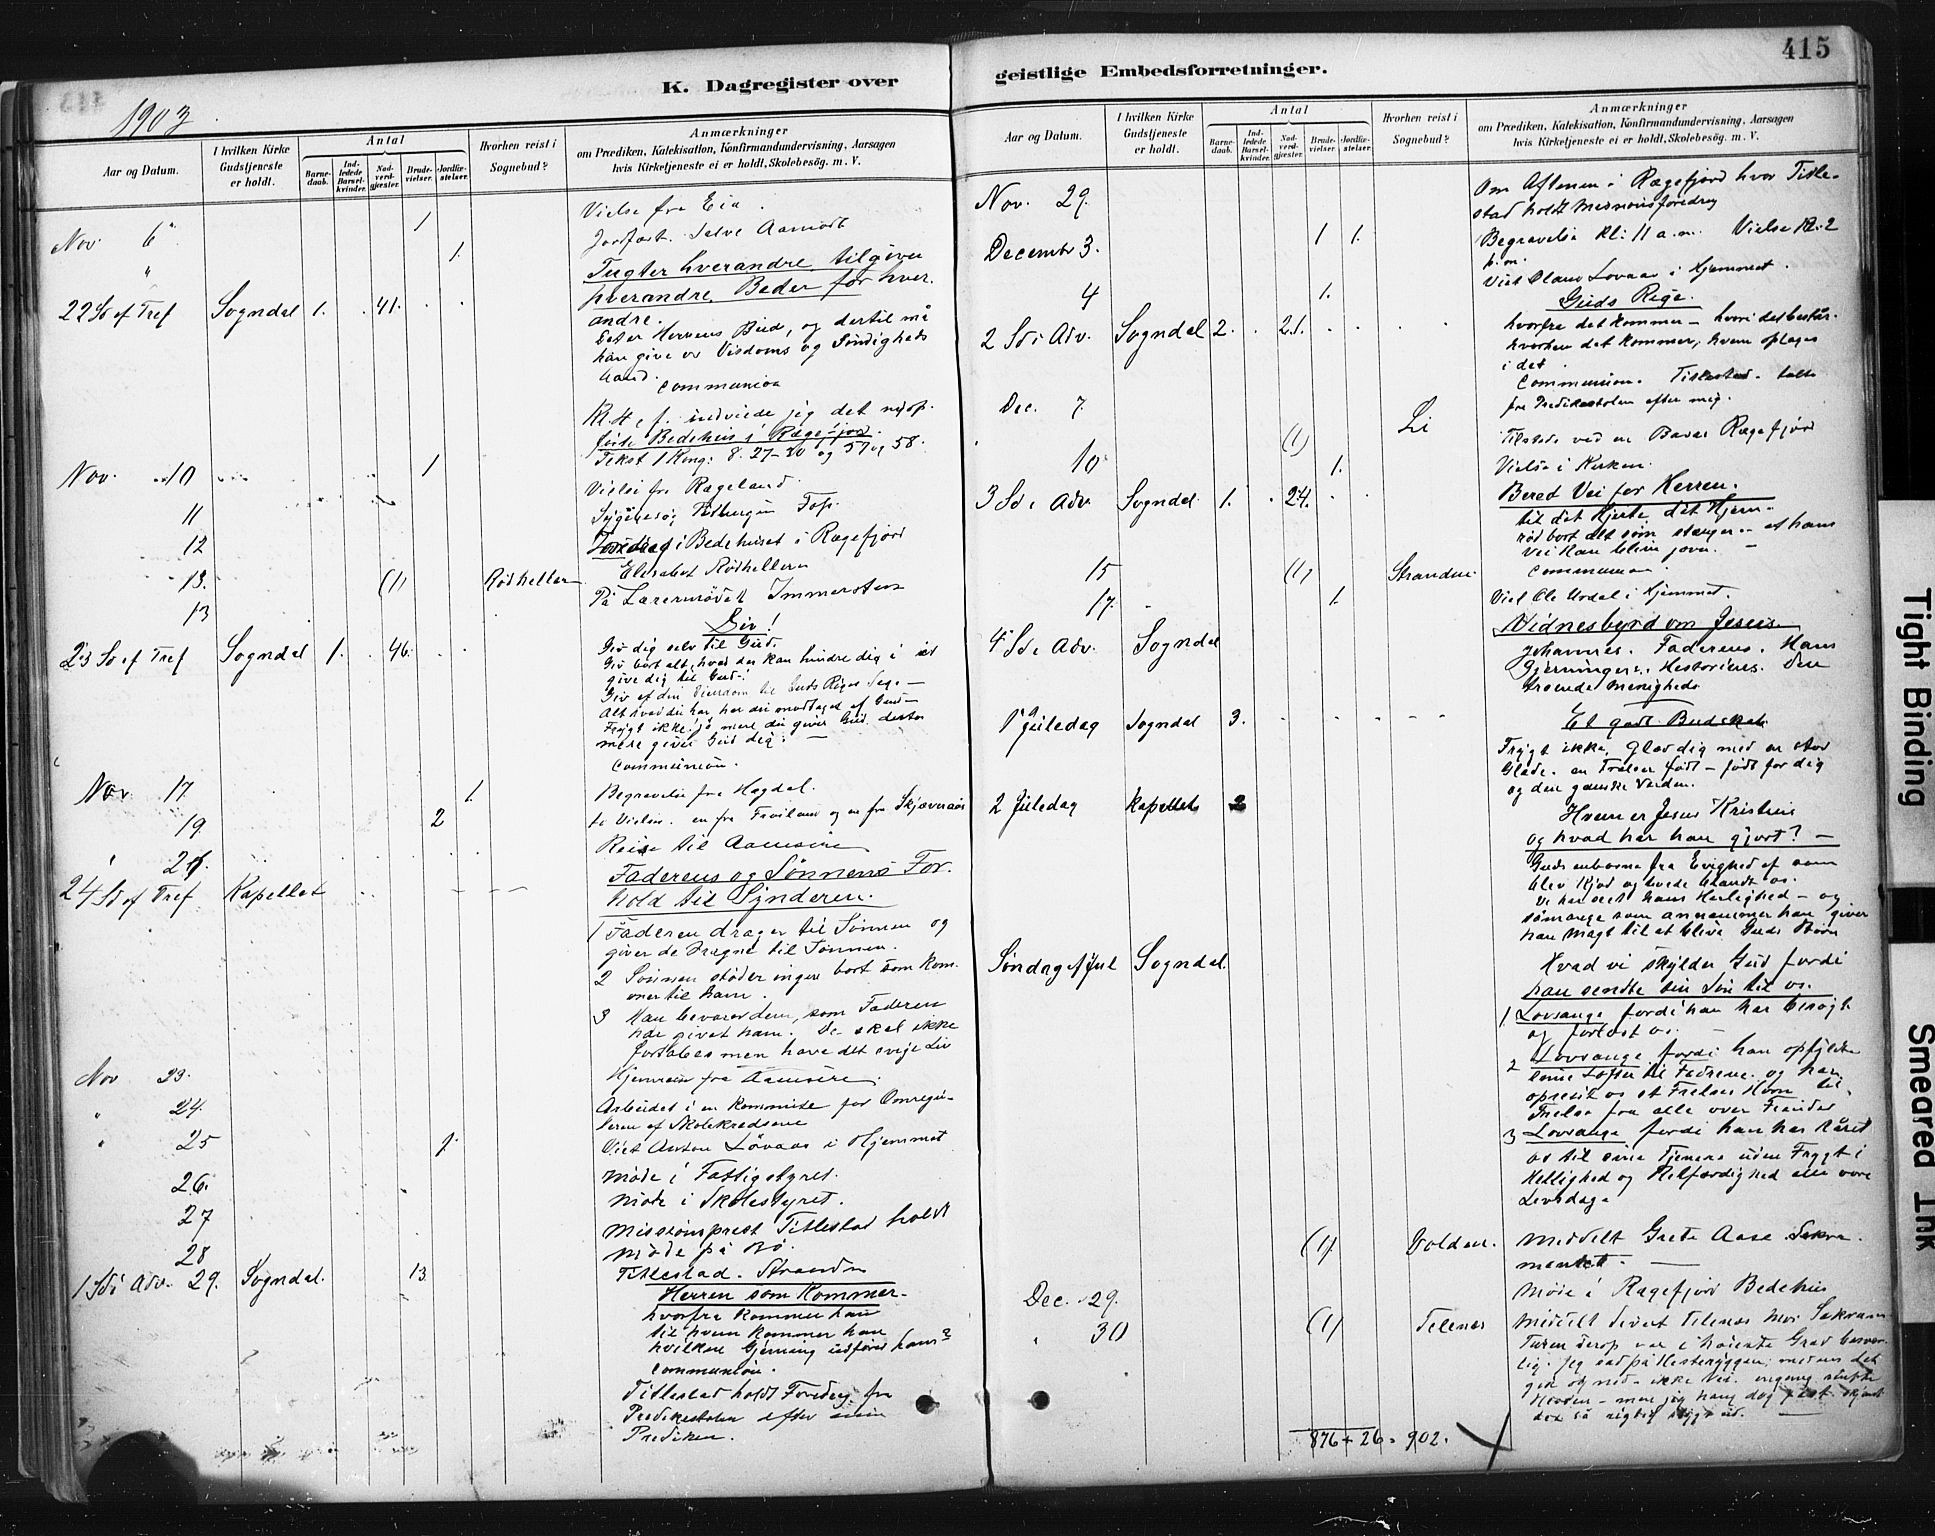 415
K. Dagregister over geistlige Embedsforretninger.
1903
Aar og Datum.
I hvilken Kirke Gudstjeneste er holdt.
Antal
Barnedaab.
Indledede Barselkvinder.
Nadverdgjester.
Brudevielser.
Jordfæstelser.
Hvorhen reist i Sognebud?
Anmærkninger
om Prædiken, Katekisation, Konfirmandundervisning, Aarsagen
hvis Kirketjeneste ei er holdt, Skolebesøg. m. V.
Vielse fra Eia.
Nov. 6 1
Jordfæst. Salve Aamodt
" 1.
Tugter hverandre, tilgiver
hverandre, Beder for hver.
andre.
22 Sd ef Tref Sogndal 1. 41.
Det er Herrens Bud, og dertil må
han give os Visdoms og
Aand.
Communion
Kl. 4 e. f. indviede jeg det nyop.
førte Bedehus i Rægefjord.
Tekst 1 Kong: 8. 27-30 og 57 og 58.
Nov. 10 1
Vielse fra Rægeland.
11
12
Foredrag i Bedehuset i Rægefjord
13. (1) Rødhellern
Elisabet Rødhellern
13
På Lærermødet Immerstein
Giv!
23 Sd ef Tref Sogndal 1. 46.
Giv dig selv til Gud.
Giv bort alt, hvad der kan hindre dig i at
give dig til Gud.
Giv af din Eiendom til Guds Riges Sag –
Alt hvad du har har du modtaget af Gud –
Frygt ikke! jo mere du giver Gud desto
mere giver Gud dig. –
Communion.
Nov 17 1.
Begravelse fra Hogdal.
19. 2
to Vielser. en fra Frøiland og en fra Skjævernæs
21
Reise til Aamsire
24 Sd ef Tref Kapellet
Faderens og Sønnens For.
hold til Synderen.
1 Faderen drager til Sønnen og
giver de Dragne til Sønnen.
2 Sønnen støder ingen bort som kom.
mer til ham.
3 Han bevarer dem, som Faderen
har givet ham. De skal ikke
fortabes men have det evige Liv
Nov 23.
Hjemreise fra Aamsire.
" 24.
Arbeidet i en Kommite for Omregu-
leren af Skolekredsene
" 25 1.
Viet Anton Løvaas i Hjemmet
26.
Møde i Fattigstyret.
27
Møde i Skolestyret.
28
Missionsprest Titlestad holdt
Møde på Bø.
1 Sd i Adv. 29. Sogndal. 13
Titlestad. Stranden
Herren som Kommer.
hvorfra kommer han
til hvem kommer han
hvilken Gjerning udfører han?
Communion.
Titlestad holdt Foredrag fra
Prædikestolen efter min
Prediken.
Aar og Datum.
I hvilken Kirke Gudstjeneste er holdt.
Antal
Barnedaab.
Indledede Barselkvinder.
Nadverdgjester.
Brudevielser.
Jordfæstelser.
Hvorhen reist i Sognebud?
Anmærkninger
om Prædiken, Katekisation, Konfirmandundervisning, Aarsagen
hvis Kirketjeneste ei er holdt, Skolebesøg. m. V.
Nov. 29.
Om Aftenen i Rægefjord hvor Title-
stad holdt Missionsforedrag
Decembr 3. 1 1.
Begravelse kl: 11 a.m. Vielse kl. 2
p.m.
4 1.
Viet Olaus Lovaas i Hjemmet.
Guds Rige.
2 Sd i Adv. Sogndal 2. 21.
hvorfra det kommer – hvori det består.
hvorhen det kommer, hvem optages
i det
Communion. Titlestad. talte
fra Predikestolen efter mig.
Dec. 7. (1) Li
Tilstede ved en Basar Rægefjord
10. 1.
Vielse i Kirken.
3 Sd i Adv. Sogndal 1. 24.
Bered Vei for Herren.
til dit Hjerte, dit Hjem –
rød bort alt som stænger – at hans
Vei kan blive jevn. –
Communion
15 (1) Stranden
17. 1.
Viet Ole Urdal i Hjemmet.
4 Sd i Adv. Sogndal
Vidnesbyrd om Jesus
Johannes. Faderens. Hans
Gjerninger. Historiens. Den
troende Menigheds
1 Juledag Sogndal 3.
Et godt Budskab
Frygt ikke, Glæd dig med en stor
Glæde. en Frelser født – født for dig
og den ganske Verden.
2 Juledag Kapellet 2
Hvem er Jesus Kristus
og hvad har han gjort? –
Guds enborne fra Evighed af som
blev Kjød og boede blandt os.
Vi har seet hans Herlighed – og
såmange som annammer ham giver
han Magt til at blive Guds Børn
Søndag ef Jul Sogndal.
Hvad vi skylder Gud fordi
han sendte sin Søn til os.
1 Lovsange fordi han har besøgt
og forløst os. –
2 Lovsange fordi han opfyldte
sine Løfter til Fædrene. og har
opreist os et Frelses Horn til
Frelse fra alle vore Fiender
3 Lovsange fordi han har kåret
os til sine Tjenere uden Frygt i
Hellighed og Retfærdighed alle vore
Levedage
(1) Dolden.
Meddelt Grete Aase Sakra.
mentet. –
Dec. 29.
Møde i Rægefjord Bedehus
" 30 (1) Telenes
Meddelt Sivert Telenes Mor Sakram
Turen derop var i høieste Grad besver-
lig. Jeg sad på Hesteryggen, medens det
gik op og ned – ikke Vei.
876 + 26 = 902.
Tight Binding
Smeared Ink